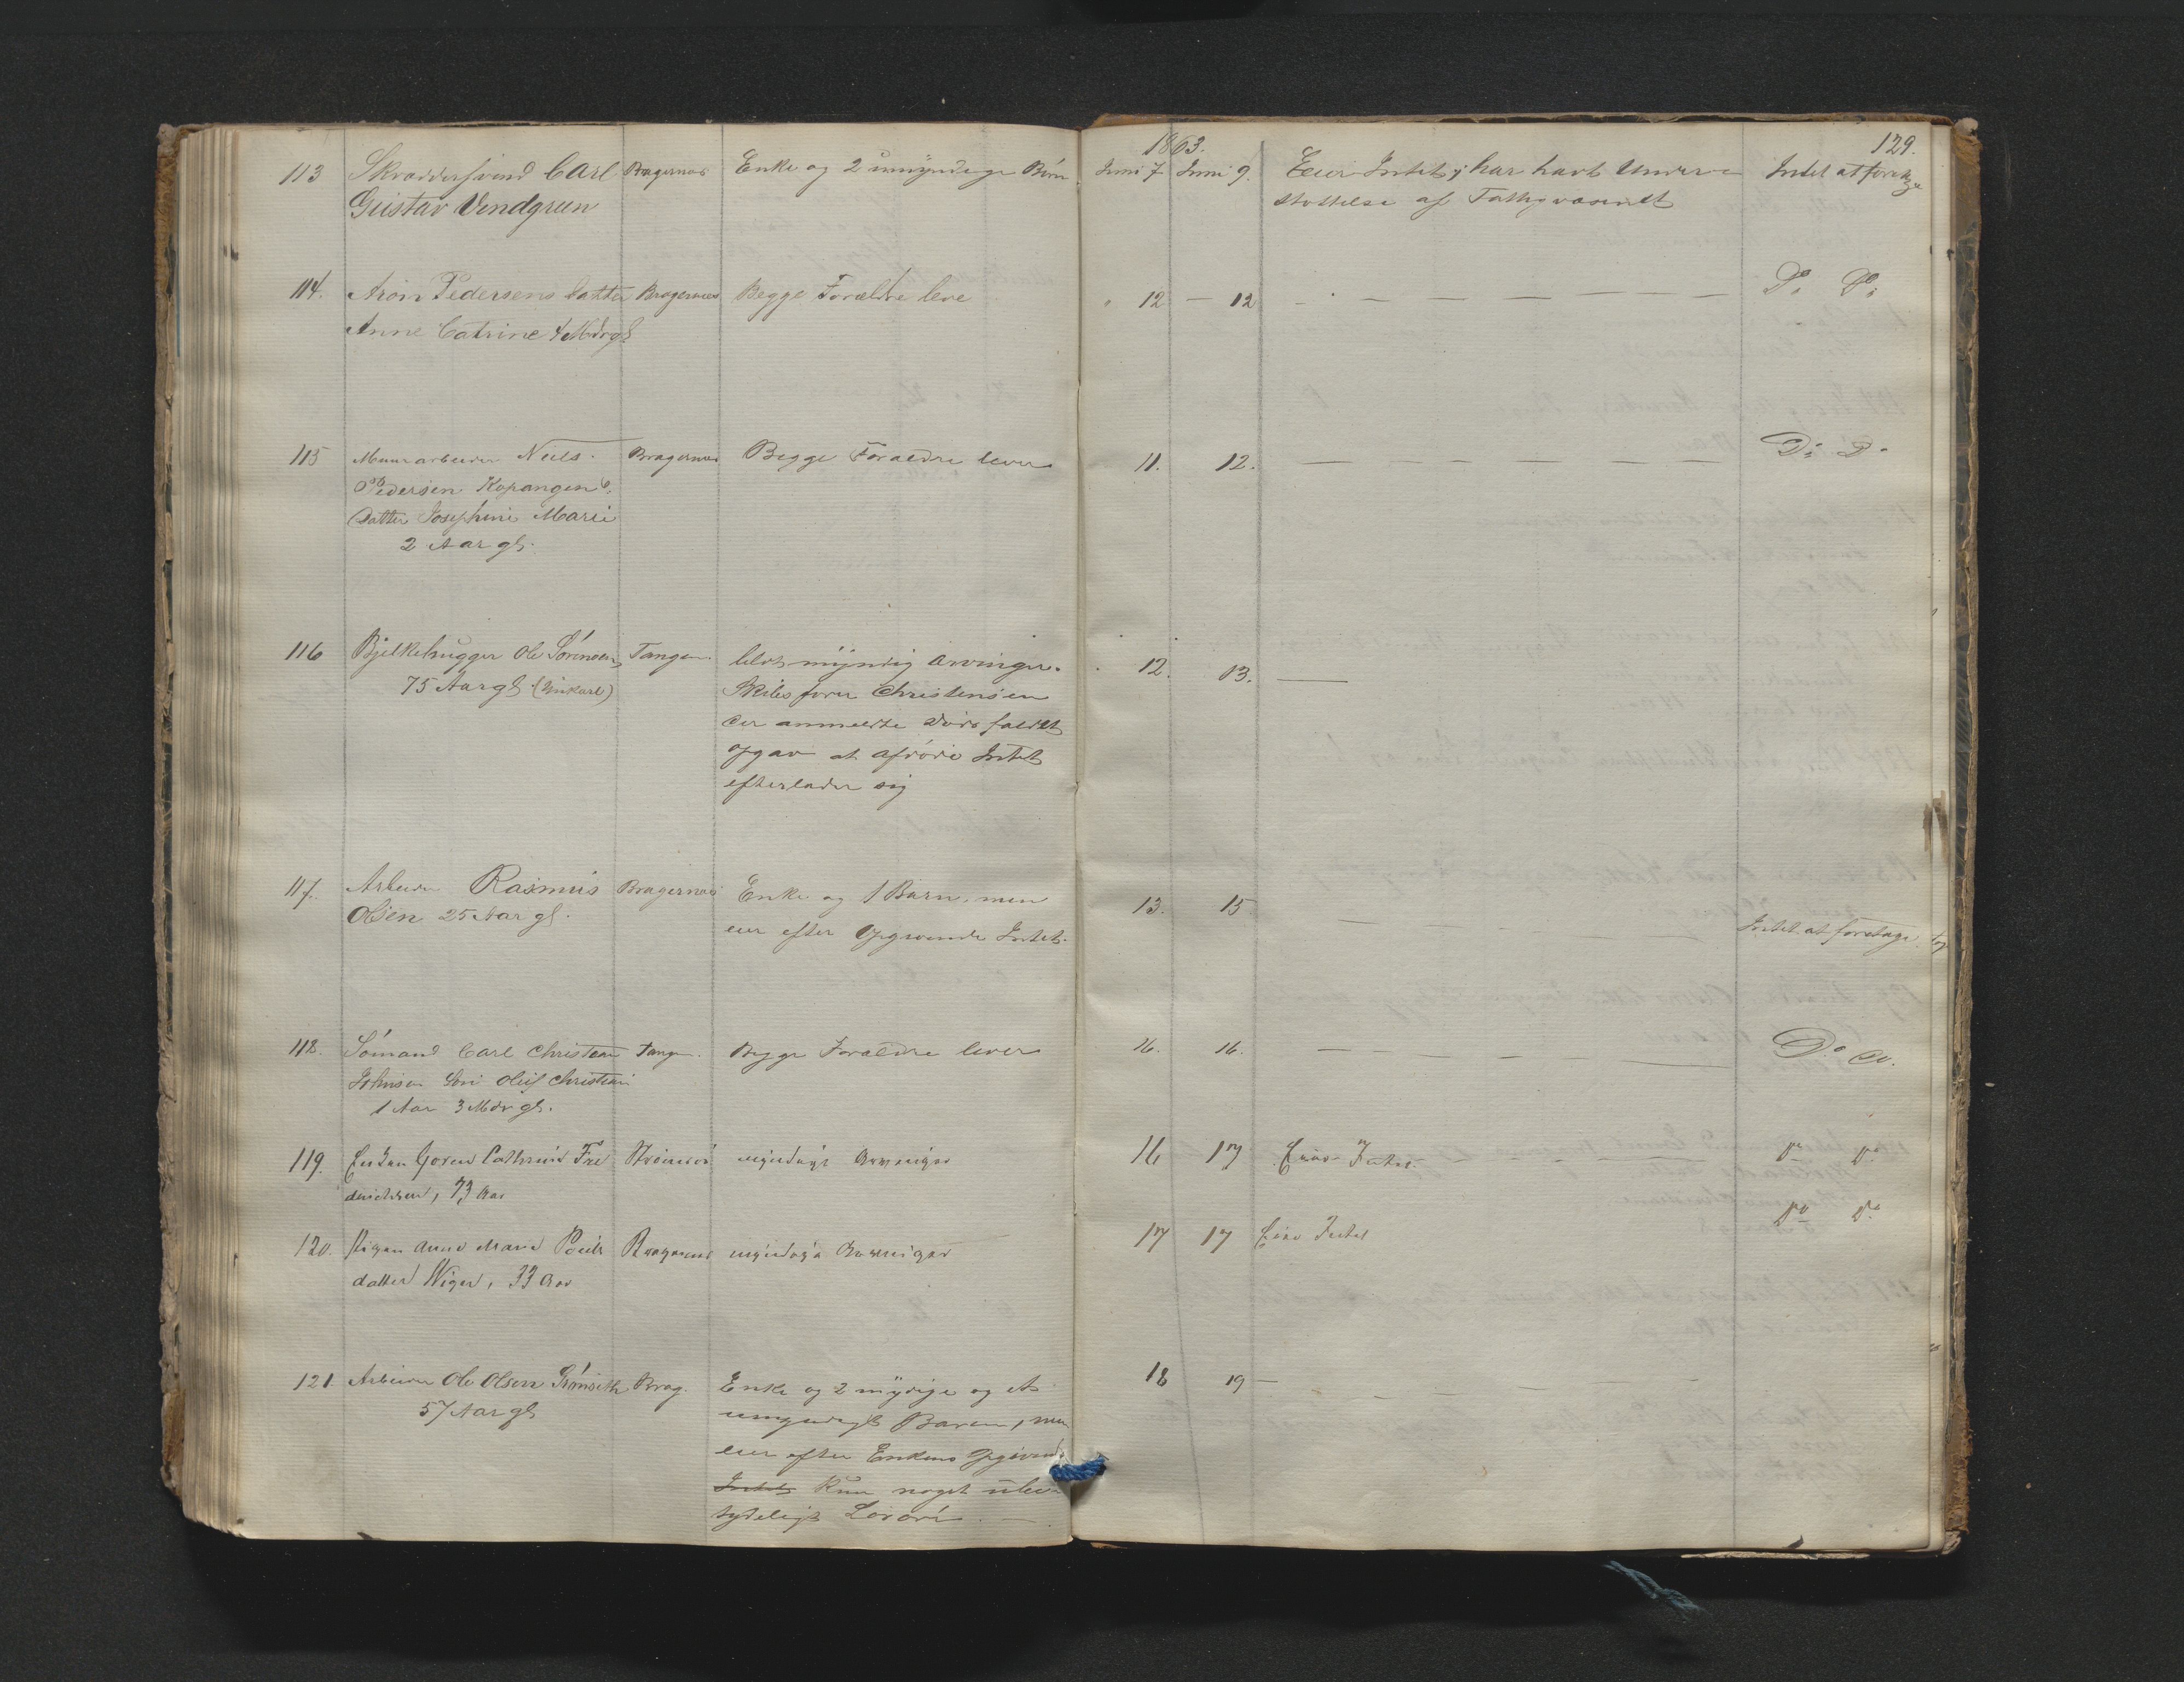 1863.
129.
113 Skræddersvend Carl Bragernæs Enke og 2 umyndige Børn Juni 7 Juni 9. Eier Intet; har havt Under- Intet at foretage
Gustav Vendgreen støttelse af Fattigvæsenet
114. Aron Pedersens Datter Bragernæs Begge Forældre leve 12 — 12 — Do. Do.
Anne Catrine 4 Mdr gl
115 Murarbeider Niels Bragernæs Begge Forældre lever 11. 12. — Do. Do
Pedersen Kopangens
Datter Josephine Marie
2 Aar gl.
116 Bjelkehugger Ole Sørensen Tangen. blot myndig Arvinger. 12. 13. —
75 Aar gl (Enkarl) Skibsfører Christensen
der anmeldte Dødsfaldet
opgav at afdøde Intet
efterlader sig
117. Arbeider Rasmus Bragernæs Enke og 1 Barn, men 13. 15 — Intet at foretage
Olsen 25 Aar gl. eier efter Opgivende Intet.
118. Sømand Carl Christian Tangen. Begge Forældre lever 16. 16. — Do. Do.
Johnsen Søn Oluf Christian
1 Aar 3 Mdr gl.
119. Enken Goren Cathrine Fre Strømsø myndige Arvinger 16 17 Eier Intet. — Do Do
derichsen, 73 Aar
120. Pigen Anne Marie Pouls Bragernæs myndige Arvinger 17 17 Eier Intet Do Do
datter Wiger, 33 Aar
121. Arbeider Ole Olsen Grønseth Brag. Enke og 2 mydige og et 18 19 —
57 Aar gl umyndigt Barn, men
eier efter Enkens Opgivende
Intet Kun noget ube-
tydeligt Løsøre. —